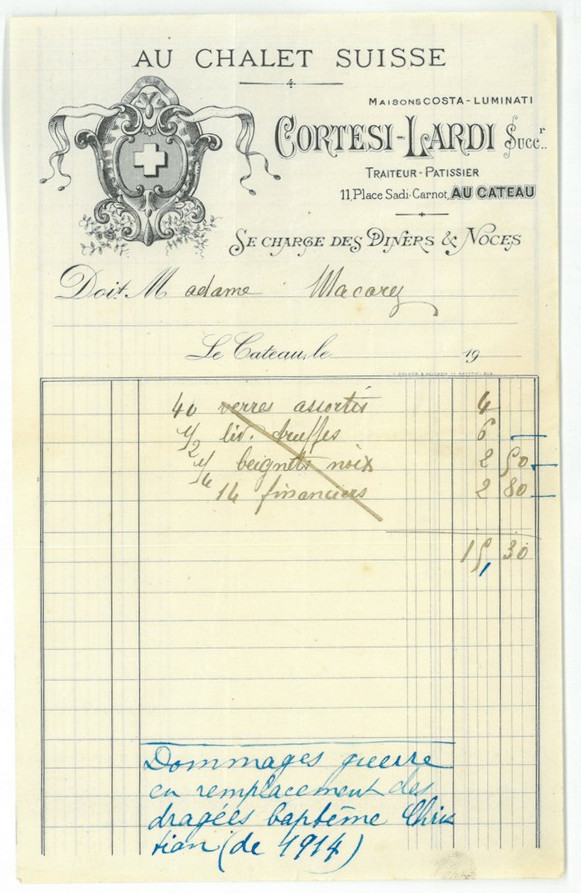 AU CHALET SUISSE
MAISONS COSTA-LUMINATI
CORTESI-LARDI Succr.
TRAITEUR-PATISSIER
11, Place Sadi-Carnot, AU CATEAU
SE CHARGE DES DINERS & NOCES
Doit M adame Macarez
Le Cateau, le 19
40 verres assortis 4
1/2 liv. truffes 6
1/4 beignets noix 2 50
14 financiers 2 80
15, 30
Dommages guerre
en remplacement des
dragées baptême Chris
tian (de 1914)